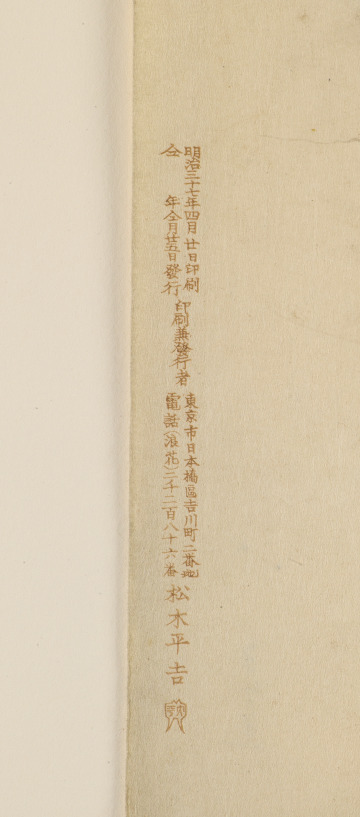 明治三十七年四月廿日印刷
仝年仝月廿五日發行
印刷兼發行者
東京市日本橋區吉川町二番地
電話(浪花)二千二百八十六番
松木平吉